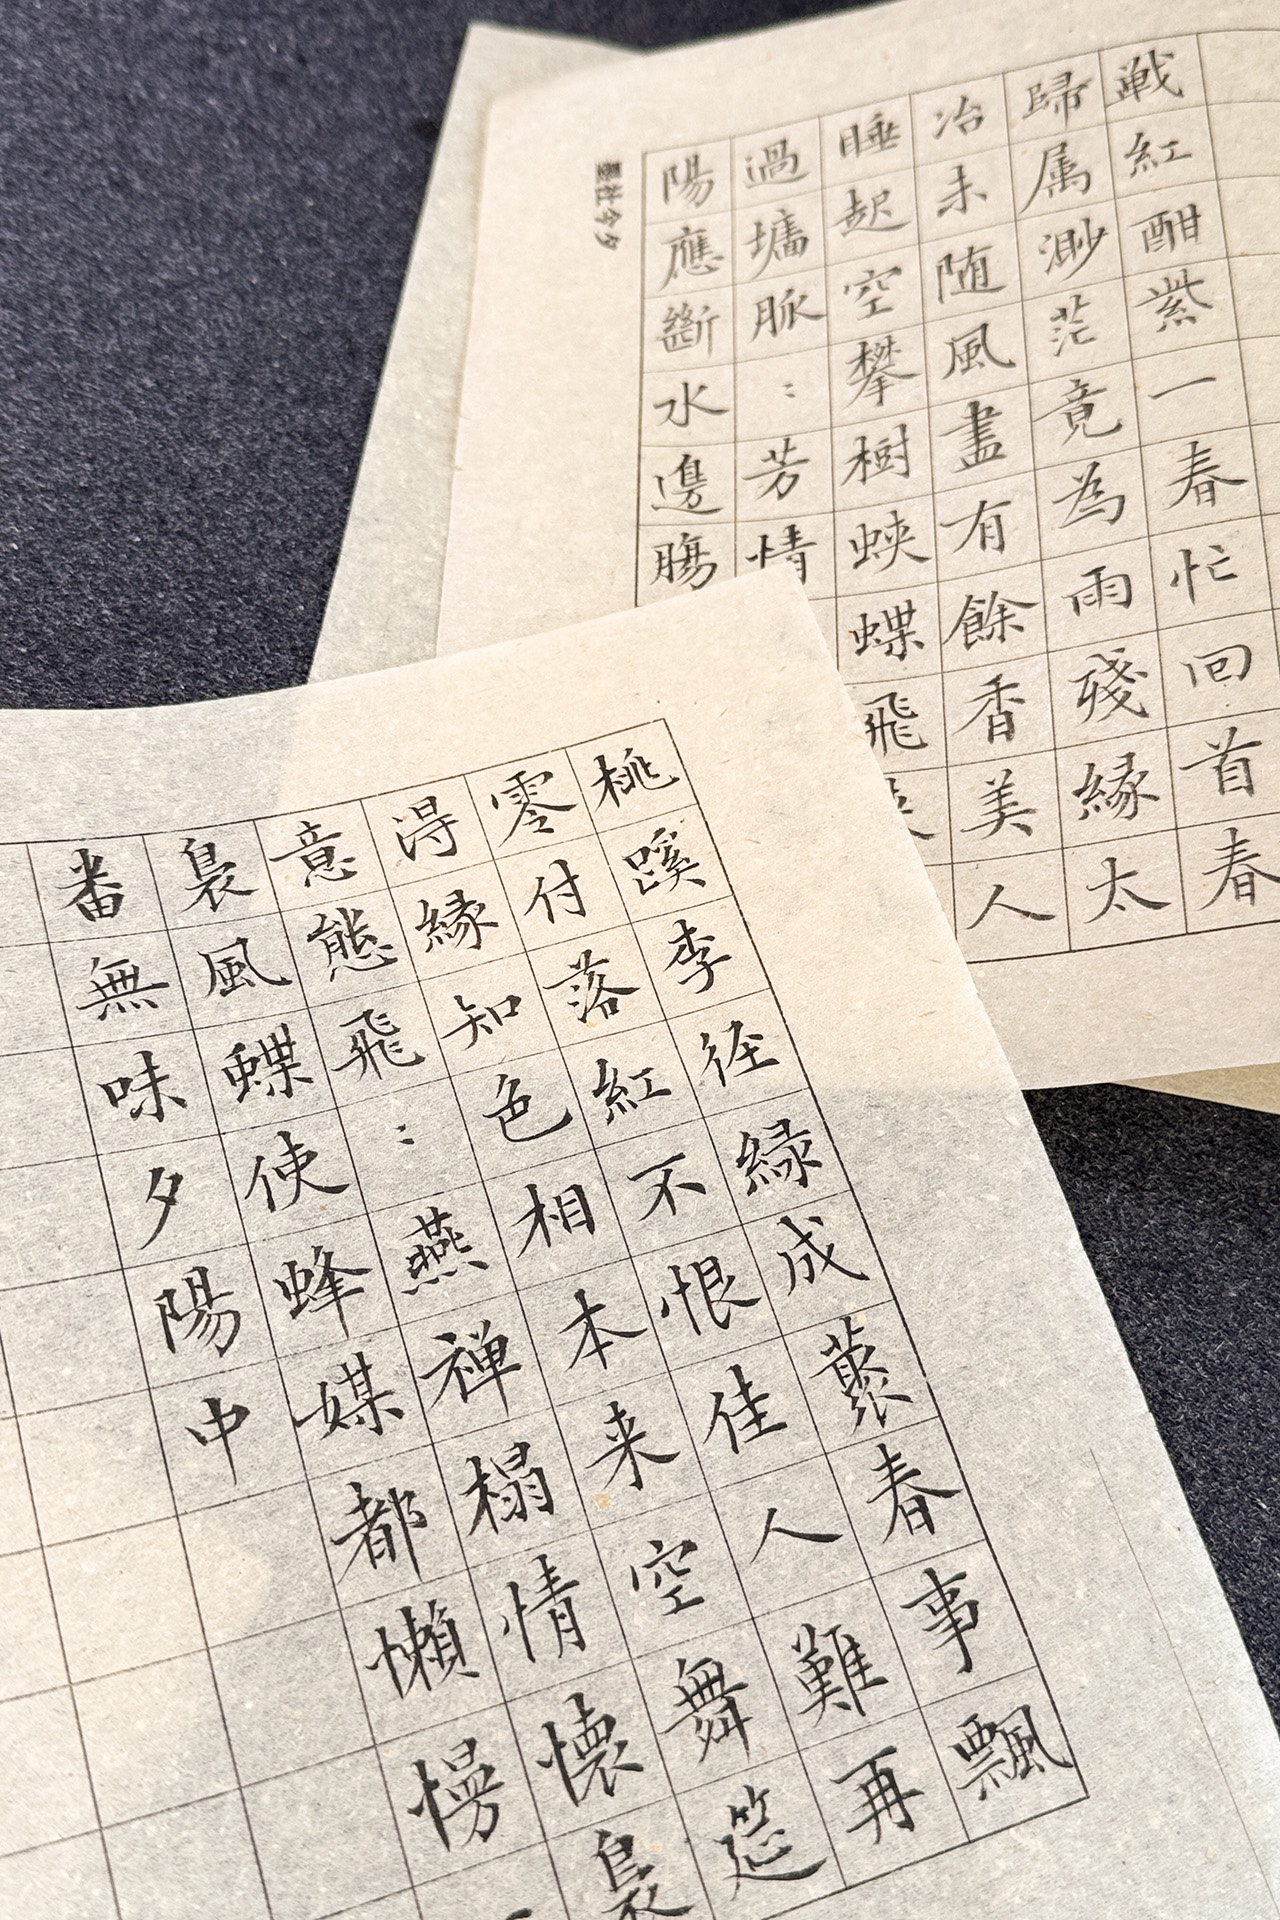 戦紅酣紫一春忙回首春
歸属渺茫竟為雨殘緣太
冶未随風盡有餘香美人
睡起空攀樹蛺蝶飛
過墉脈：芳情
陽應斷水邊腸
社今夕
桃蹊李径緑成藂春事飄
零付落紅不恨佳人難再
淂緣知色相本来空舞筵
意態飛：燕禅榻情懷裊
裊風蝶使蜂媒都懶慢
番無味夕陽中